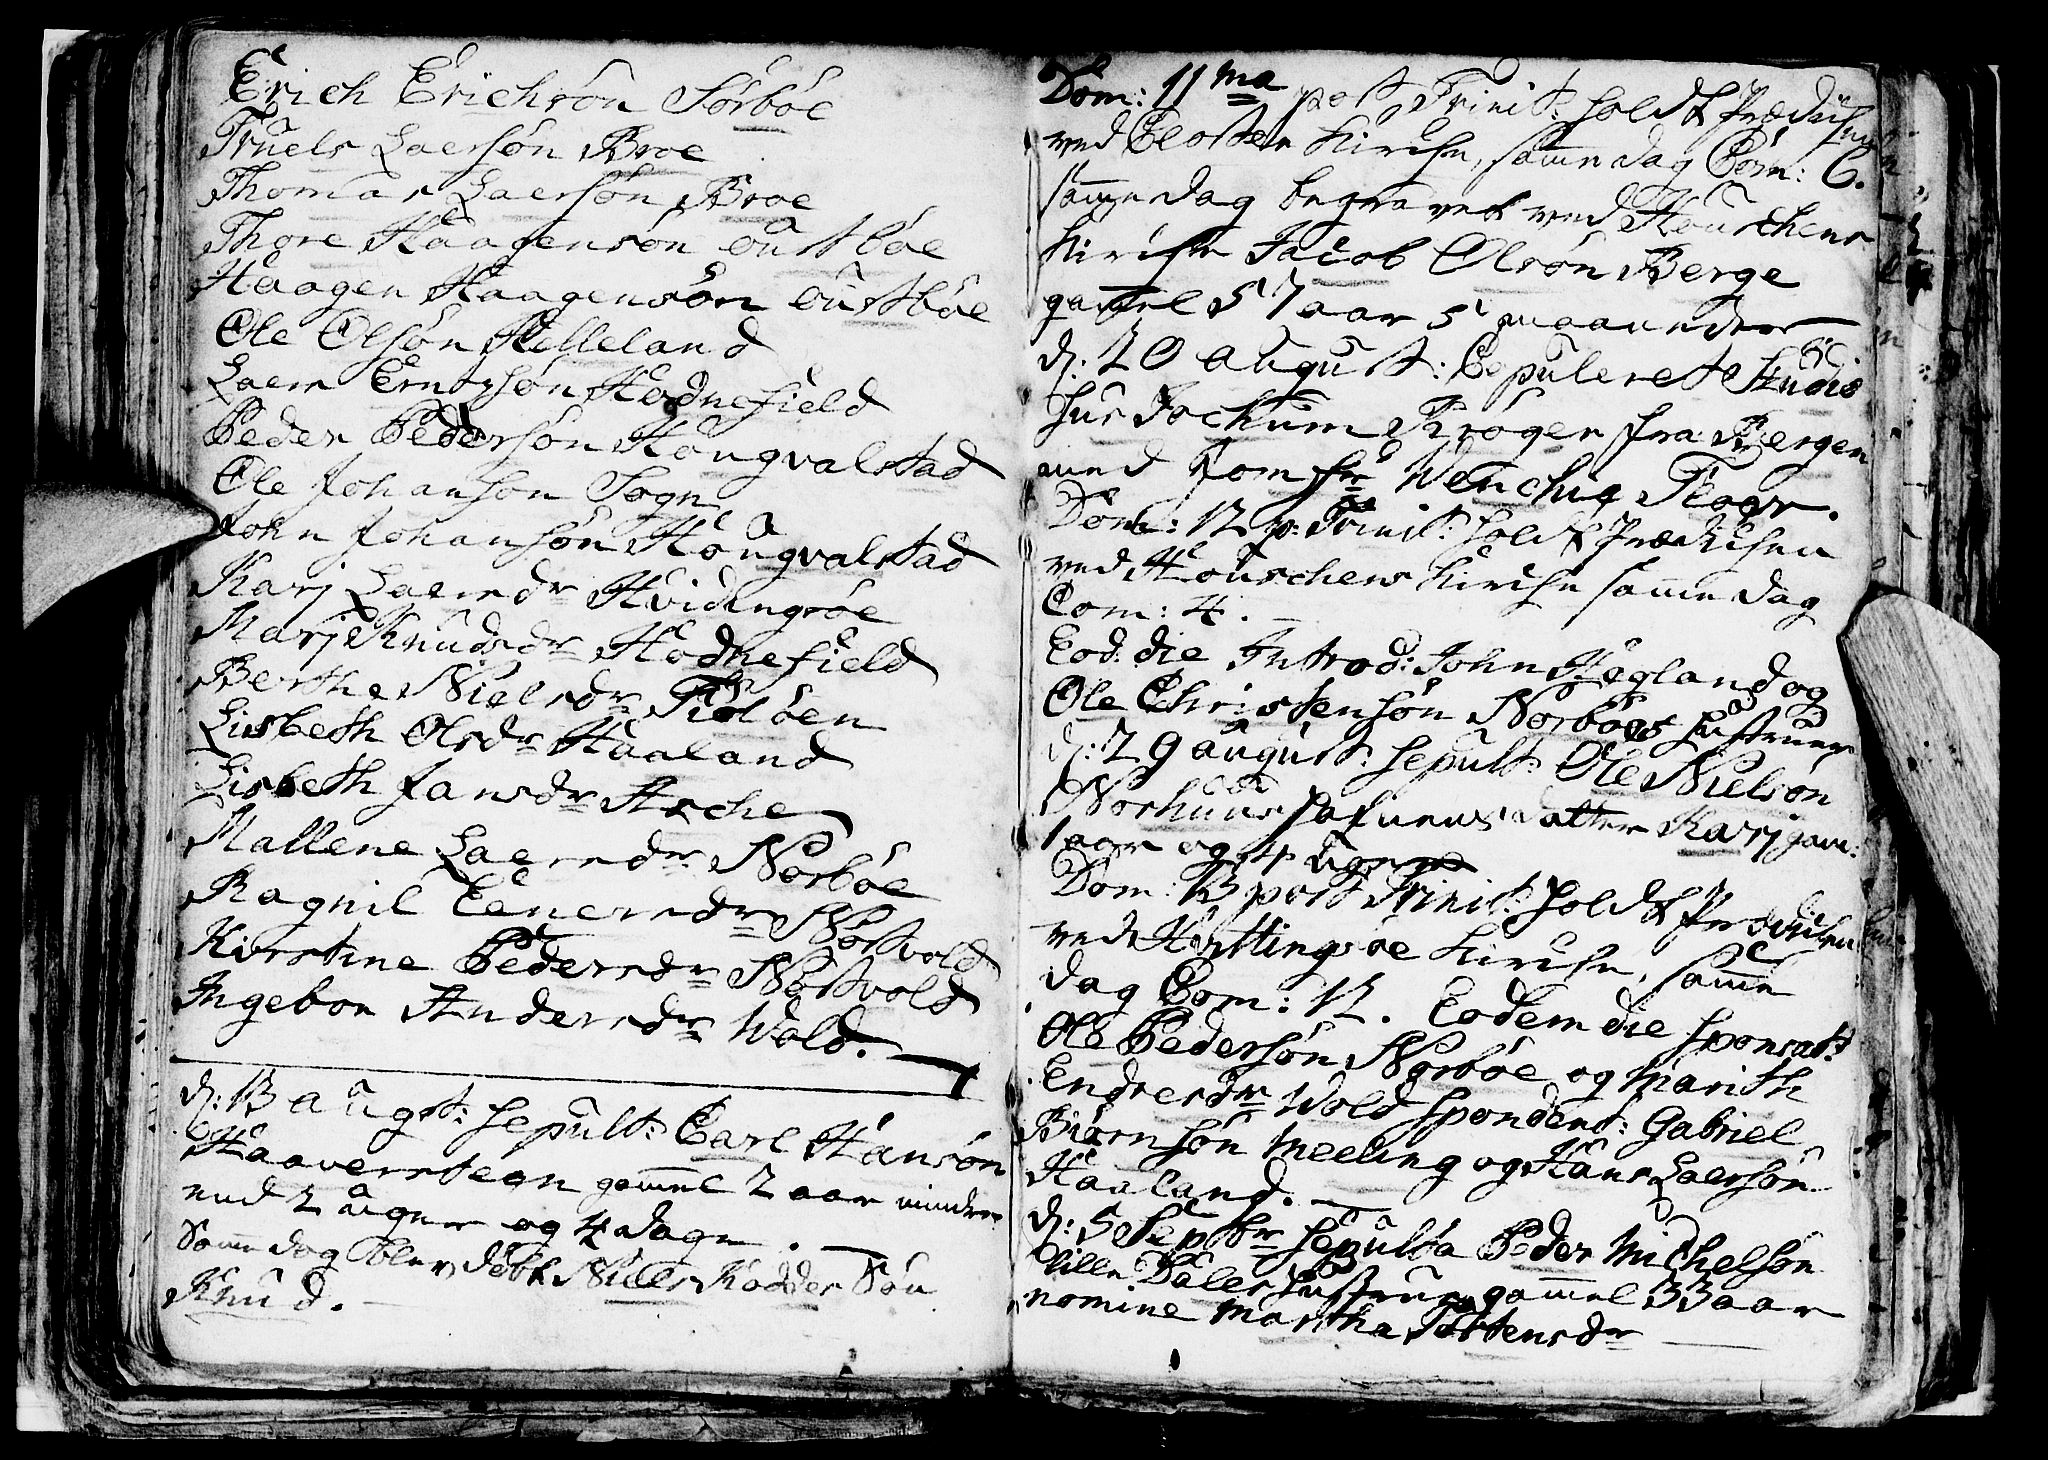 Erich Erichsön Sörböe
Truels Laersön Broe
Thomas Laersön Broe
Thore Haagensön oustböe
Haagen Haagensön oustböe
Ole Olsön Helleland
Laers Erntzsön Hodnefield
Peder Pedersön Hougvalstad
Ole Johansön Sogn
John Johansön Hougvalstad
Karj Laersdr Hvidingsöe
Marj Knudsdr Hodnefield
Berthe Nielsdr Fiölöen
Lisbeth Olsdr Haaland
Lisbeth Jansdr Asche
Mallene Laersdr Norböe
Ragnil Eenersdr Nöstvold
Kirstine Pedersdr Nöstvold
Ingebor Andersdr Wold.
d: 13 augst: sepult: Carl Hansön
Haaversteen gammel 2 aar mindre
end 2 uger og 4 dage.
Samme dag blev döbt Niels Kodder Sön
Knud.
Dom: 11ma post Trinit: holdt Prædichen
ved Closter Kirche, samme dag Com: 6.
samme dag begravet ved Houschens
Kirche Jacob Olsön Berge
gammel 57 aar 5 maaneder
d: 20 august: Copuleret Studio
sus Jochum Kröger fra Bergen
med Jomfr Wenchie Flogr.
Dom: 12 p: Trinit: holdt Prædichen
ved Houschens Kirche samme dag
Com: 4.
Eod: die Introd: John Hegland og
Ole Christensön Norböes hustruer
d: 29 august: sepult: Ole Nielsön
Norhuus datter Karj gam:
1 aar og 4 uger
Dom: 13 post Trinit: holdt Prædichen
ved Hvittingsöe Kirche, samme
dag Com: 12. Eodem die sponsat:
Ole Pedersön Norböe og Marith
Endresdr Wold spondent: Gabriel
Biörnsön Meeling og Hans Laersön
Haaland.
d: 5 Septbr sepulta Peder Michelsön
lille Dales hustrue gammel 33 aar
nomine Martha Tostensdr